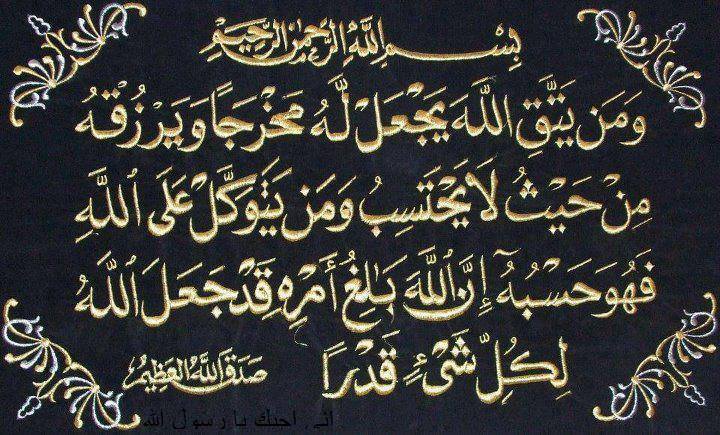 بِسْمِ اللَّهِ الرَّحْمَٰنِ الرَّحِيمِ
وَمَن يَتَّقِ اللَّهَ يَجْعَل لَّهُ مَخْرَجًا وَيَرْزُقْهُ
مِنْ حَيْثُ لَا يَحْتَسِبُ وَمَن يَتَوَكَّلْ عَلَى اللَّهِ
فَهُوَ حَسْبُهُ إِنَّ اللَّهَ بَالِغُ أَمْرِهِ قَدْ جَعَلَ اللَّهُ
لِكُلِّ شَيْءٍ قَدْرًا صَدَقَ اللَّهُ الْعَظِيمُ
اني احبك يا رسول الله